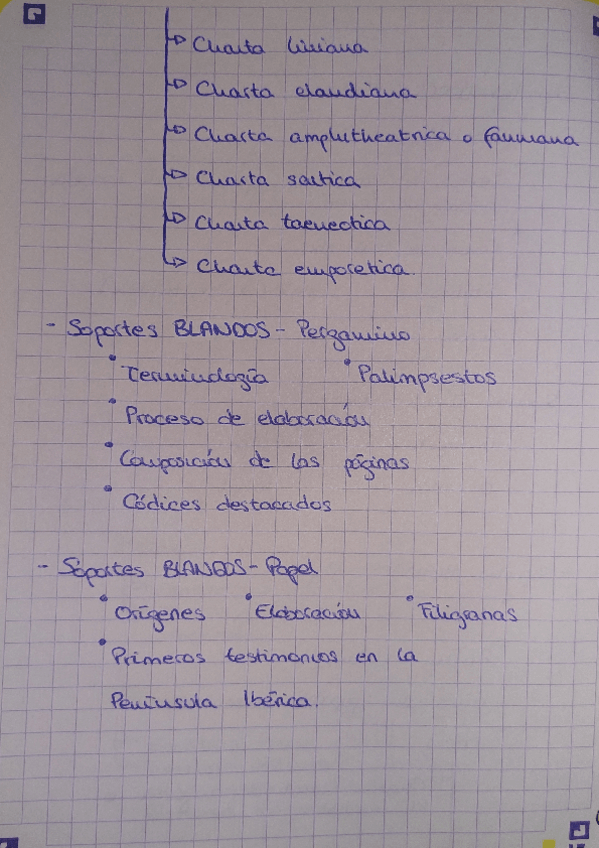 Charta liviana
Charta claudiana
Charta amphitheatrica o fanniana
Charta saitica
Charta taeneotica
Charta emporetica.
- Soportes BLANDOS - Pergamino
• Terminología • Palimpsestos
• Proceso de elaboración
• Composición de las páginas
• Códices destacados
- Soportes BLANDOS - Papel
• Orígenes • Elaboración • Filigranas
• Primeros testimonios en la
Península Ibérica.